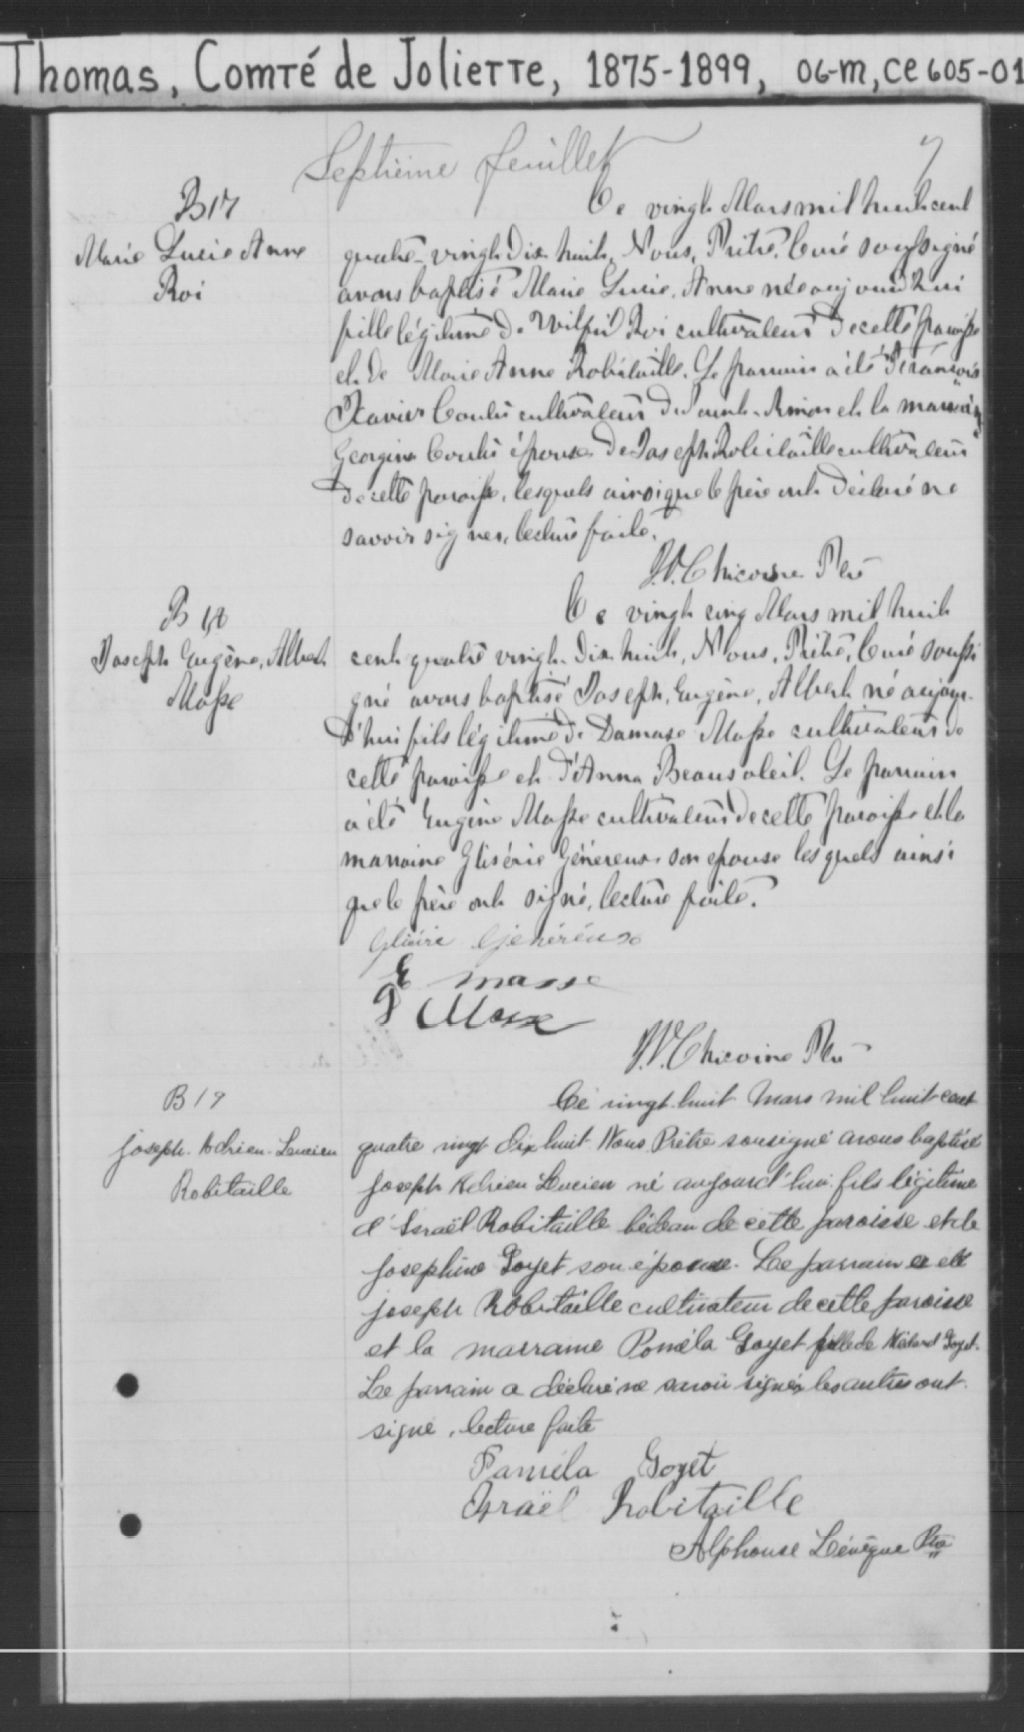 Thomas, Comté de Joliette, 1875-1899, 06-M, CE605-01
Septième feuillet
7
B 17
Marie Lucie Anne
Roi
Ce vingt Mars mil huit cent
quatre-vingt Dix huit, Nous, Prêtre, Curé soussigné
avons baptisé Marie Lucie, Anne née aujourd'hui
fille légitime de Wilfrid Roi cultivateur de cette paroisse
et de Marie Anne Robitaille. Le parrain a été François
Xavier Coutu cultivateur de et la marraine
Georgina Coutu épouse de Joseph Robitaille cultivateur
de cette paroisse, lesquels ainsi que le père ont déclaré ne
savoir signer, lecture faite.
Chicoine Ptre
B 18
Joseph Eugène, Albert
Masse
Ce vingt cinq Mars mil huit
cent quatre vingt-Dix huit, Nous, Prêtre, Curé soussi
gné avons baptisé Joseph, Eugène, Albert né aujour-
d'hui fils légitime de Damase Masse cultivateur de
cette paroisse et d'Anna Beausoleil. Le parrain
a été Eugène Masse cultivateur de cette paroisse et la
marraine Glisérie Généreux son epouse lesquels ainsi
que le père ont signé, lecture faite.
Généreux
E masse
D Masse
Chicoine Ptre
B 19
Joseph-Adrien-Lucien
Robitaille
Ce vingt-huit Mars mil huit cent
quatre vingt dix huit Nous Prêtre sousigné avons baptisé
Joseph Adrien Lucien né aujourd'hui fils légitime
d'Israël Robitaille bédeau de cette paroisse et de
Josephine Goyet son épouse. Le parrain a été
Joseph Robitaille cultivateur de cette paroisse
et la marraine Poméla Goyet fille de Goyet.
Le parrain a déclaré ne savoir signer les autres ont
signé, lecture faite
Paméla Goyet
Israël Robitaille
Alphonse Lévêque Ptre